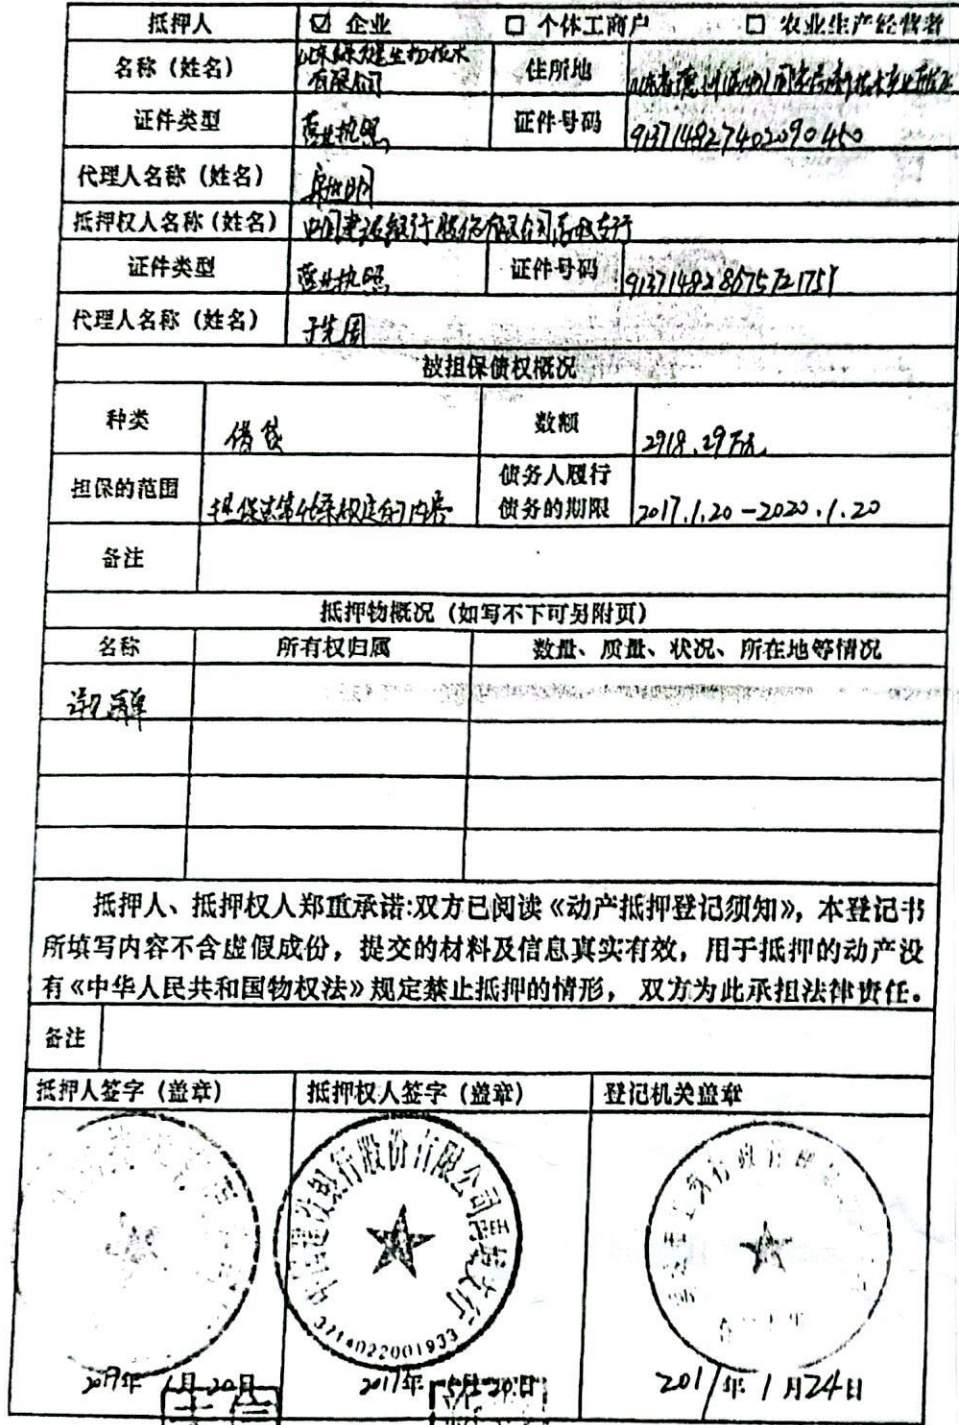 抵押人 ☑ 企业 □ 个体工商户 □ 农业生产经营者
名称（姓名） 山东绿健生物技术有限公司 住所地
证件类型 营业执照 证件号码 913714827402090450
代理人名称（姓名）
抵押权人名称（姓名） 中国建设银行股份有限公司禹城支行
证件类型 营业执照 证件号码
代理人名称（姓名） 于先国
被担保债权概况
种类 借贷 数额 2918.29万元
担保的范围 担保法第46条规定的内容 债务人履行债务的期限 2017.1.20-2020.1.20
备注
抵押物概况（如写不下可另附页）
名称 所有权归属 数量、质量、状况、所在地等情况
详见清单
抵押人、抵押权人郑重承诺:双方已阅读《动产抵押登记须知》，本登记书
所填写内容不含虚假成份，提交的材料及信息真实有效，用于抵押的动产没
有《中华人民共和国物权法》规定禁止抵押的情形， 双方为此承担法律责任。
备注
抵押人签字（盖章） 抵押权人签字（盖章） 登记机关盖章
中国建设银行股份有限公司禹城支行
3714022001933
2017年1月20日 2017年1月20日 2017年1月24日